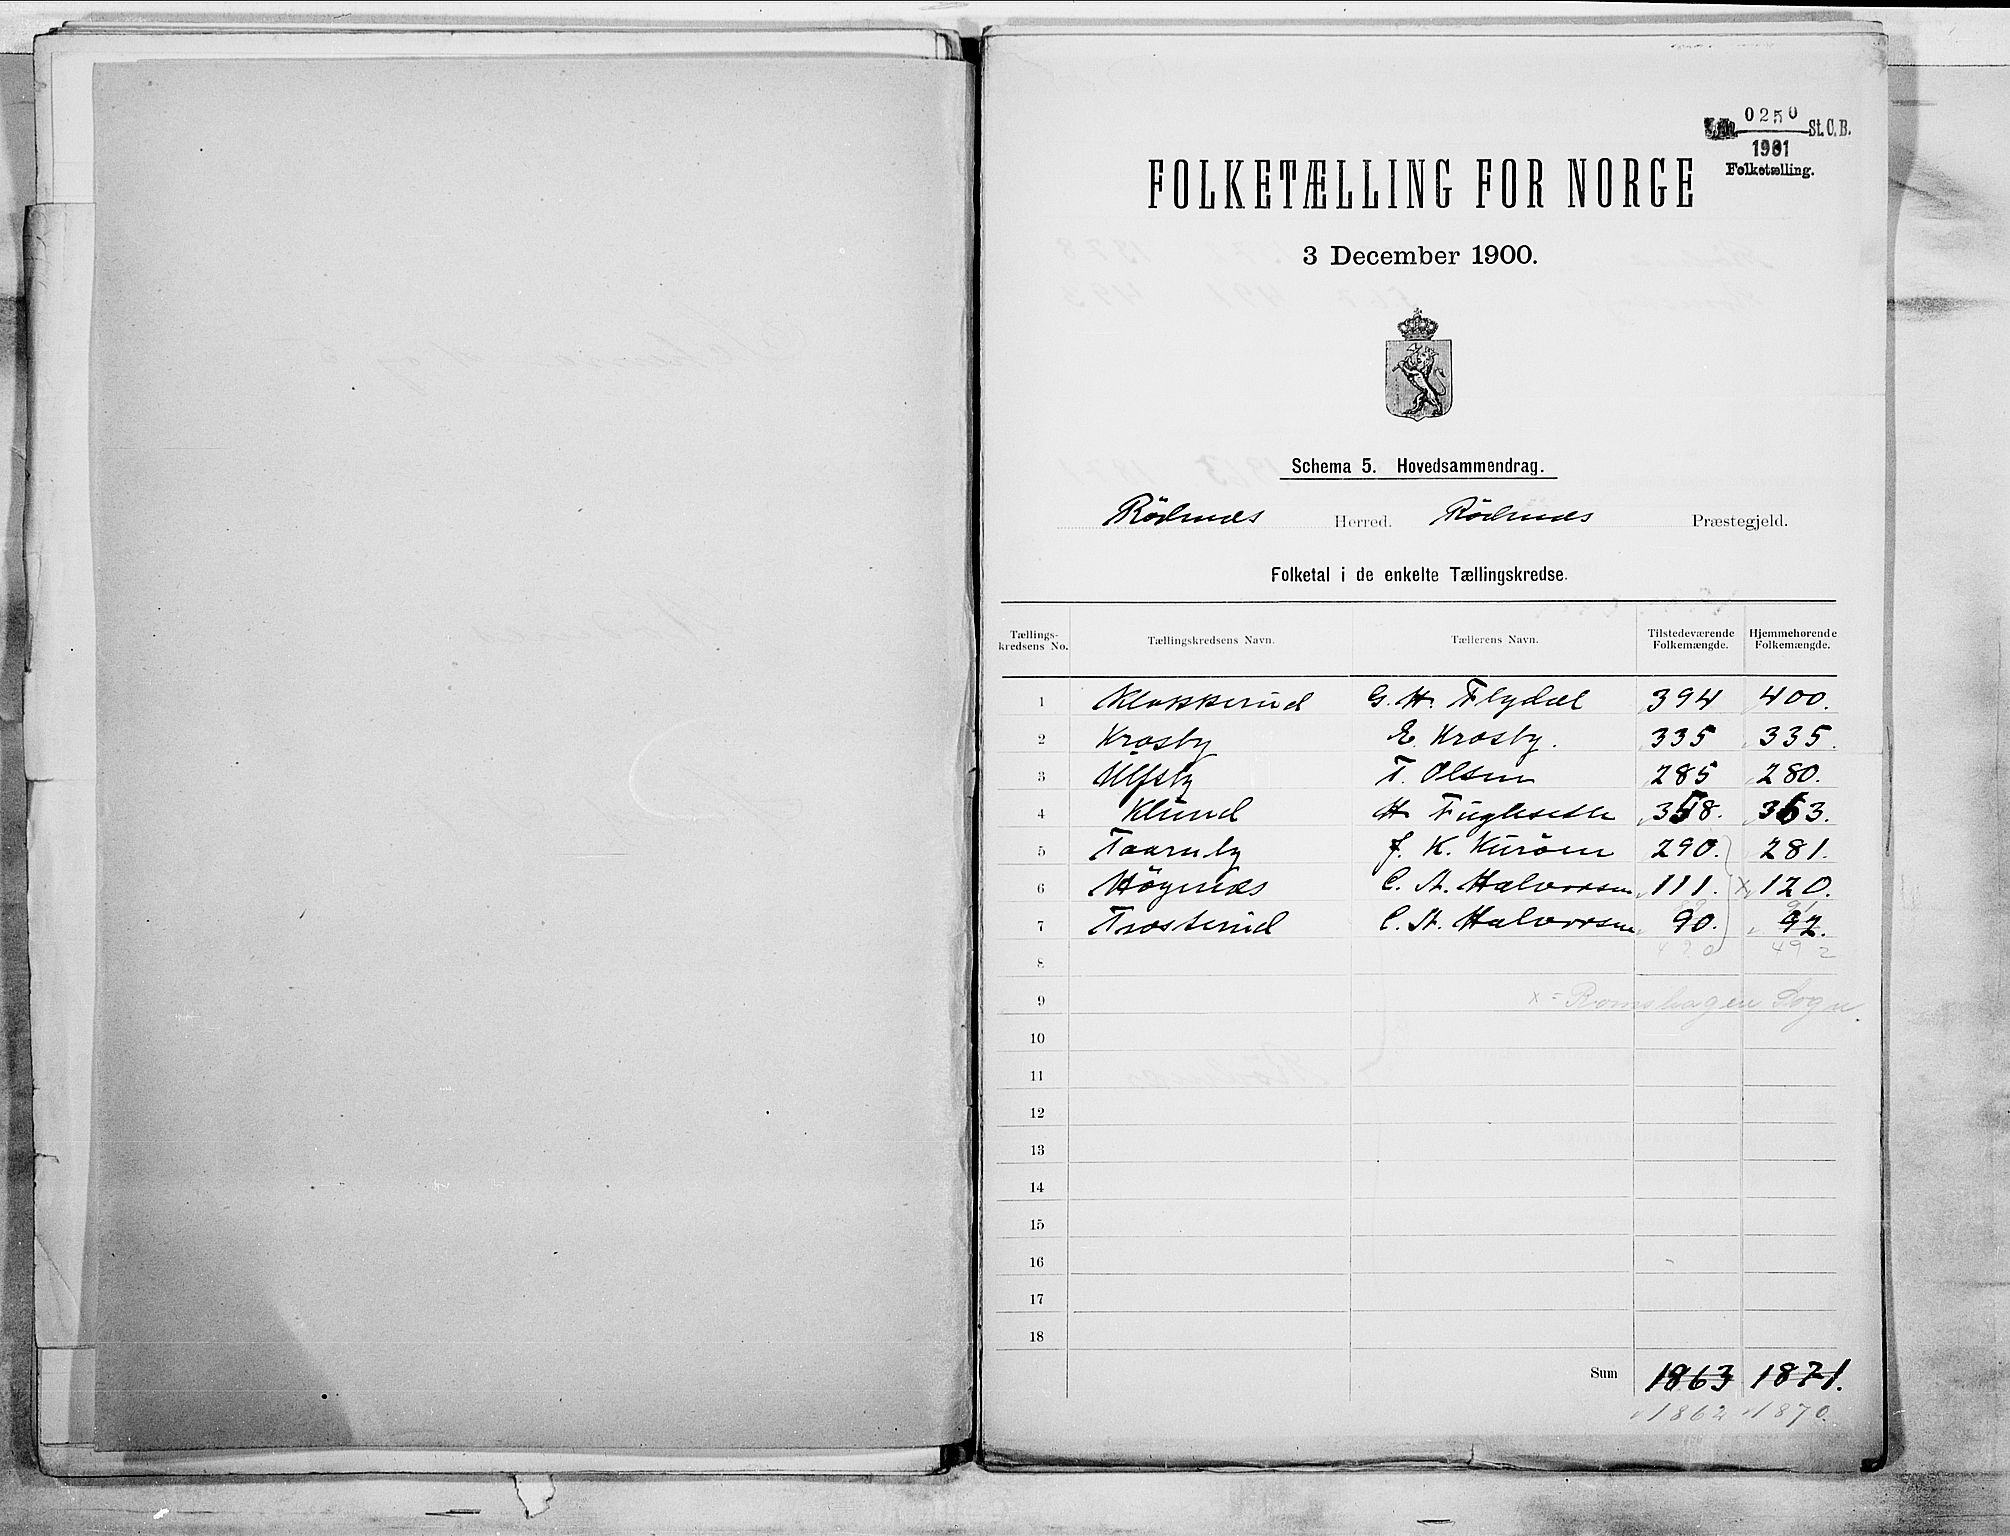 0250
St.C.B.
1901
Folketælling.
FOLKETÆLLING FOR NORGE
3 December 1900.
Schema 5. Hovedsammendrag.
Rödenæs Herred. Rödenæs Præstegjeld.
Folketal i de enkelte Tællingskredse.
Tællings-kredsens No. Tællingskredsens Navn. Tællerens Navn. Tilstedeværende Folkemængde. Hjemmehørende Folkemængde.
1 Klokkerud G. H. Flydal 394 400.
2 Krosby E. Krosby. 335 335.
3 Ulfsby T. Olsen 285 280.
4 Klund H. Fugleseth 358. 363.
5 Taarnby J. K. Kuröen 290. 281.
6 Högnæs C. A. Halvorsen 111. x 120.
7 Trosterud C. A. Halvorsen 90. 92.
89 91
8 490 492
9 x = Romshagen Sogn.
10
11
12
13
14
15
16
17
18
Sum 1863 1871.
1862 1870.